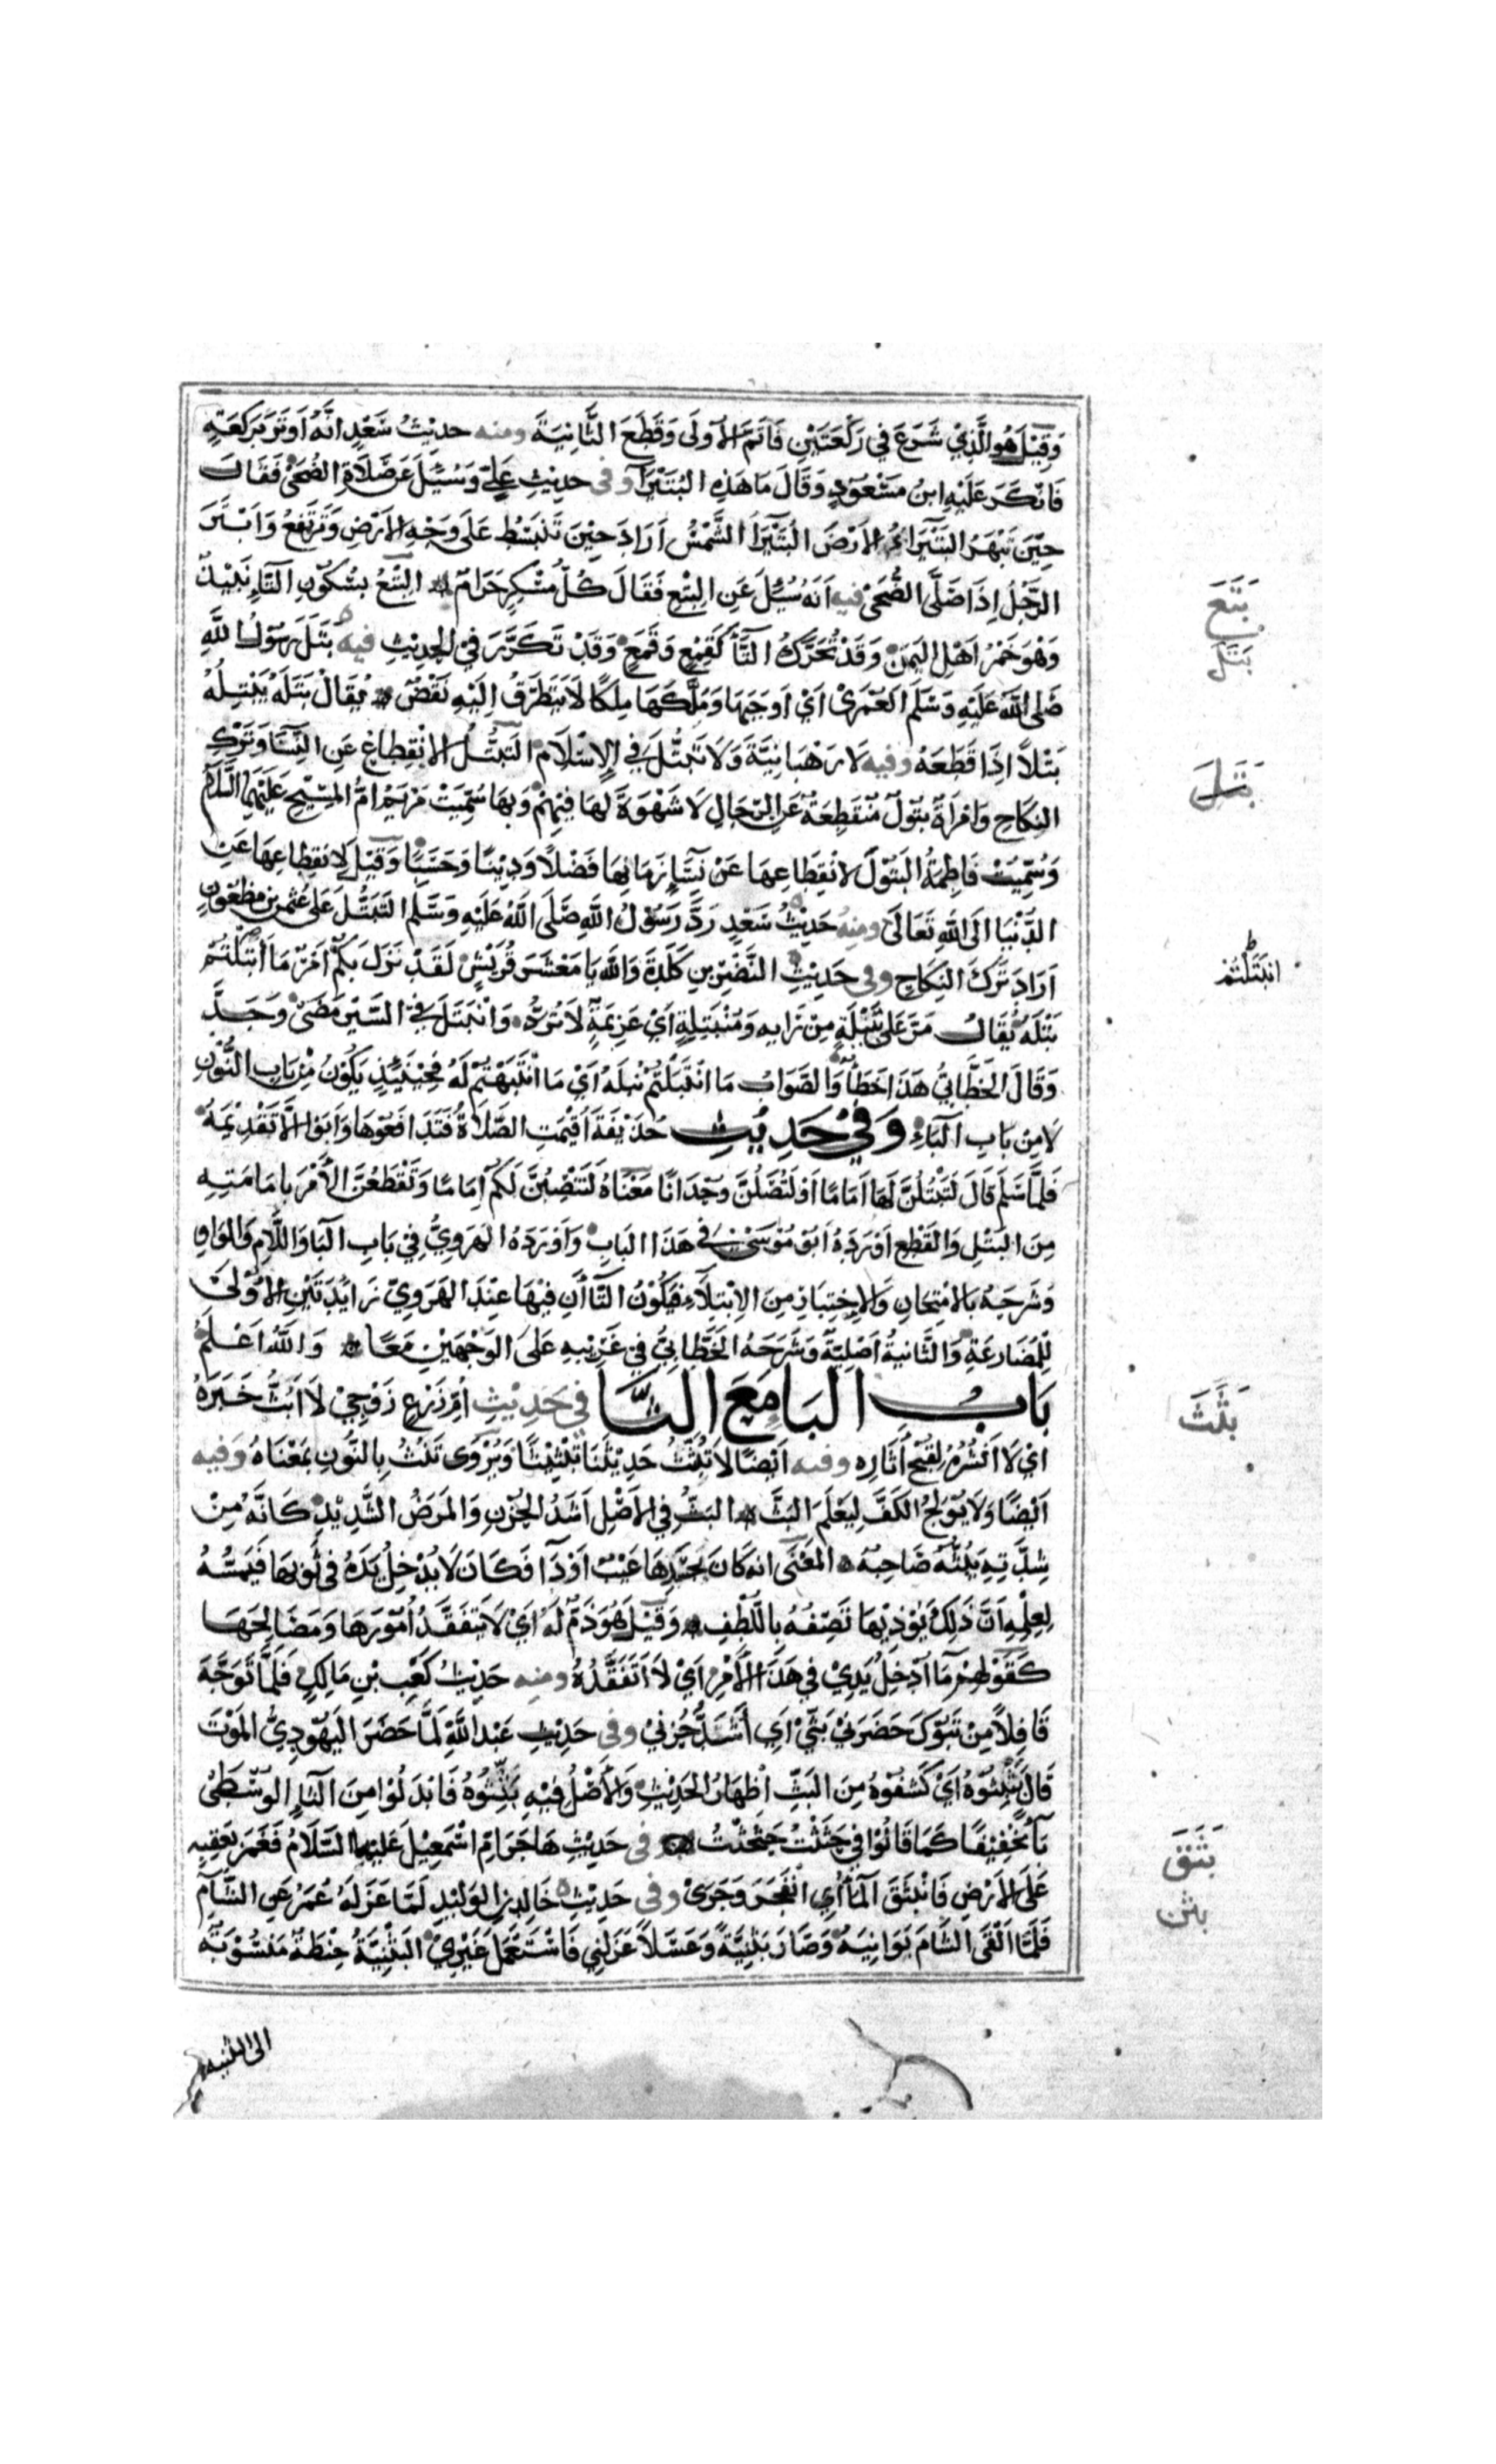 وَقِيْلَ هُوَ الَّذِيْ شَرَعَ فِي رَكْعَتَيْنِ فَاَتَمَّ الْاُولَى وَقَطَعَ الثَّانِيَةَ ومنه حديثُ سَعْدٍ انَّهُ اَوْتَرَ بِرَكْعَةٍ
فَاَنْكَرَ عَلَيْهِ ابنُ مَسْعُودٍ وَقَالَ مَا هَذِهِ البُتَيْرَا وفى حديثِ عَلِيّ وَسُئِلَ عَن صَلَاةِ الضُحَى فَقَالَ
حِيْنَ تَبْهَرُ البُتَيْرَاءُ الاَرْضَ البُتَيْرَا الشَّمْسُ اَرَادَ حِيْنَ تَنْبَسُطُ عَلَى وَجْهِ الاَرْضِ وَتَرْتَفِعُ وَاَبْتَرَ
الرَّجُلُ اِذَا صَلَّى الضُّحَى فيه اَنَهُ سُئِلَ عَنِ البِتْعِ فَقَالَ كُلُّ مُسْكِرٍ حَرَامٌ البِتْعُ بسُكُوْنِ التَّاءِ نَبِيْذُ
بتع
وَهُوَ خَمْرُ اَهْلِ اليَمَنِ وَقَدْ تُحَرَّكُ التَّا كَقِمْعٍ وَقَمَعٍ وَقَدْ تَكَرَّرَ فِي الحَدِيْثِ فيه بَتَلَ رَسُوْلُ اللهِ
بتل
صَلى اللهُ عَلَيْهِ وَسَلم العُمْرَى اَيْ اَوجَبَهَا وَمَلَّكَهَا مِلكًا لَا يَتَطَرَّقُ اِلَيْهِ نَقْضٌ يُقَالُ بَتَلَهُ يَبْتِلُهُ
بَتْلًا اِذَا قَطَعَهُ وفيه لَا رَهْبَانِيَّةَ وَلَا تَبَتُّلَ فِي الاِسْلَامِ التَبَتُّلُ الانْقِطاعُ عَنِ النِّسَا وَتَرْكِ
بتل
النِكَاحِ وَامْرَاَةٌ بتُوْلٌ مُنْقَطِعَةٌ عَنِ الرِّجَالِ لَا شَهْوَةَ لَهَا فِيهِمْ وَبِهَا سُمِّيَتْ مَرْيَمُ امُّ المَسِيْحِ عَلَيْهِمَا السَّلَامُ
وَسُمِّيَتْ فَاطِمَةُ البَتُوْلَ لانْقِطَاعِهَا عَنْ نِسَاءِ زَمَانِهَا فَضْلًا وَدِيْنًا وَحَسَبًا وَقِيْلَ لاِنقِطاعِهَا عَنِ
الدُّنْيَا اِلَى اللهِ تَعَالَى ومنهُ حَدِيْثُ سَعْدٍ رَدَّ رَسُوْلُ اللهِ صَلَى اللهُ عَلَيْهِ وَسَلَّم التَبَتُّلَ عَلى عُثمن بن مظعُونٍ
اَرَادَ تَرْكَ النِكَاحِ وفى حَدِيْثِ النَّضْرِ بنِ كَلَدَةَ وَالله يَا مَعْشَرَ قُرَيْشٍ لَقَدْ نَزَلَ بِكُمْ اَمْرٌ مَا اَبْتَلْتُمْ
انبتلتم
بَتْلَهُ يُقَالُ مَرَّ عَلَى بَتِيْلَةٍ مِنْ رَايِهِ وَمُنْبَتِلَةٍ اَيْ عَزِيمَةٍ لَا تُرَدُّ وَانْبَتَلَ فِي السَّيْرِ مَضَى وَجَدَّ
وَقَالَ الخَطَّابِيُّ هَذَا خَطَأٌ وَالصَّوَابُ مَا انْتَبَلْتُمْ نَبْلَهُ اَيْ مَا انْتَبَهْتُمْ لَهُ فَحِيْنَئِذٍ يَكُوْنُ مِنْ بَابِ النُّوْنِ
لَا مِنْ بَابِ البَاءِ وَفِيْ حَدِيْثِ حُذَيْفَةَ اُقِيْمَتِ الصَّلَاةُ فَتَدَافَعُوْهَا وَاَبَوْا اِلَّا تَقْدِيْمَهُ
فَلَمَّا سَلَّمَ قَالَ لَتَبْتُلُنَّ لَهَا اِمَامًا اَوْ لَتُصَلُّنَّ وِحْدَانًا مَعْنَاهُ لَتَنْصِبُنَّ لَكُمْ اِمَامًا وَتَقْطَعُنَّ الْاَمْرَ بِاِمَامَتِهِ
مِنَ البَتْلِ وَالقَطْعِ اَوْرَدَهُ اَبُو مُوْسَى فِي هَذَا البَابِ وَاَوْرَدَهُ الهَرَوِيُّ فِيْ بَابِ البَا وَاللَّامِ وَالوَاوِ
وَشَرَحَهُ بِالاِمْتِحَانِ وَالاِخْتِبَارِ مِنَ الاِبْتِلَاءِ فَتَكُوْنُ التَّاآنِ فِيْهَا عِنْدَ الهَرَوِيّ زَائِدَتَيْنِ الاُوْلَى
لِلْمُضَارِعَةِ وَالثَّانِيَةُ اَصْلِيّةً وَشَرَحَهُ الخَطَّابِيُّ فِي غَرِيْبِهِ عَلَى الوَجْهَيْنِ مَعًا وَاللهُ اَعْلَمُ
بَابُ البَا مَعَ الثَّا فِي حَدِيْثِ اُمِّ زَرْعٍ زَوْجِيْ لَا اَبُثُّ خَبَرَهُ
بثث
ايْ لَا اَنْشُرُهُ لِقُبْحِ اٰثَارِهِ وفيه اَيْضًا لَا تَبُثُّ حَدِيْثَنَا تَبْثِيْثًا وَيُرْوَى تَنُثُّ بِالنُّونِ بمَعْنَاهُ وَفيه
اَيْضًا وَلَا يُوْلِجُ الكَفَّ لِيَعْلَمَ البَثَّ البَثُّ فِي الاَصْلِ اَشَدُ الحُزْنِ وَالمَرَضُ الشَّدِيْدُ كَانَّهُ مِنْ
شِدَّتِهِ يَبُثُّهُ صَاحِبَهُ المَعْنَى انه كَانَ بِجَسَدِهَا عَيْبٌ اَوْ دَا فَكَانَ لَا يُدْخِلُ يَدَهُ فِى ثَوْبِهَا فَيَمَسُّهُ
لِعِلْمِهِ اَنَّ ذَلِكَ يُؤْذِيْهَا تَصِفُهُ بِاللُّطْفِ وَقِيْلَ هُوَ ذَمٌّ لَهُ اَيْ لَا يَتَفَقَّدُ اُمُوْرَهَا وَمَصَالِحَهَا
كَقَوْلِهِمْ مَا اُدْخِلُ يَدِيْ فِي هَذَا الْاَمْرِ اَيْ لَا اَتَفَقَّدُهُ ومنه حَدِيْثُ كَعْبِ بْنِ مَالِكٍ فَلَمَّا تَوَجَّهَ
قَافِلاً مِنْ تَبُوْكَ حَضَرَنِيْ بَثِّيْ اَي اَشَدُّ حُزْنِيْ وفى حَدِيْثِ عَبْدِ اللهِ لَمَّا حَضَرَ اليَهُوْدِيَّ المَوْتُ
قَالَ بَثْبِثُوْهُ اَيْ كَشفُوْهُ مِنَ البَثِّ اِظهَارُ الحَدِيْثِ وَالْاَصْلُ فِيْهِ بَثِّثُوْهُ فَابْدَلُوْا مِنَ الثَّاءِ الوُسْطَى
بَاً تَخْفِيْفًا كَمَا قَالُوْا فِي حَثَّثْتُ حَثْحَثْتُ فى حَدِيْثِ هَاجَرَ امِّ اسْمعِيْلَ عَليْهَا السَّلَامُ فَغَمَزَ بِعَقِبِهِ
بثق
عَلَى الاَرْضِ فَانْبَثَقَ المَاءُ اَيِ انْفَجَرَ وَجَرَى وفى حَدِيْثِ خَالِدِ بنِ الوَلِيْدِ لَمَّا عَزَلَهُ عُمَرُ عَنِ الشَّامِ
بثن
فَلَمَّا اَلْقَى الشَّامُ بَوَانِيَهُ وَصَارَ بَثْنِيَّةً وَعَسَلاً عَزَلَنِي فَاسْتَعْمَلَ غَيْرِيْ البَثْنِيَّةُ حِنْطَةٌ مَنْسُوْبَةٌ